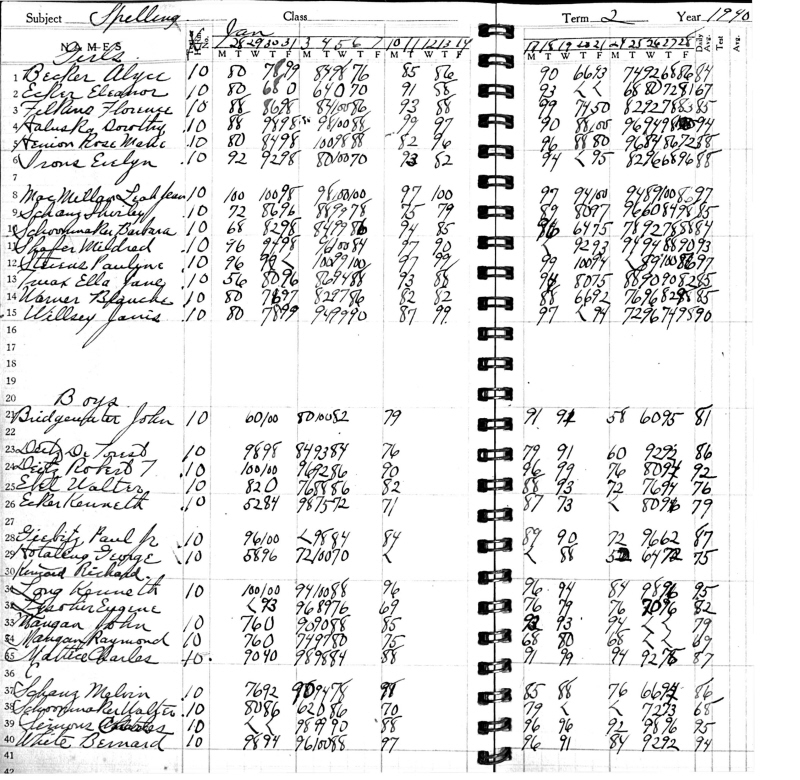 Subject Spelling Class Term 2 Year 1940
Jan
28 29 30 31 3 4 5 6 7 10 11 12 13 14 17 18 19 20 21 24 25 26 27 28 Daily Avg. Test Avg.
NAMES M T W T F M T W T F M T W T F M T W T F M T W T F
Girls.
1 Becker Alyce 10 80 78 99 84 98 76 85 86 90 66 93 74 92 68 86 84
2 Ecker Eleanor 10 80 68 0 64 0 70 91 58 93 < 68 80 72 81 67
3 Filkins Florence 10 88 86 98 84 100 86 93 88 99 74 50 82 92 78 83 85
4 Haluska Dorothy 10 88 98 98 98 100 88 99 97 90 88 100 96 94 98 94
5 Henion Rose Marie 10 80 84 98 100 98 88 82 96 96 88 80 96 84 86 72 88
6 Irons Evelyn 10 92 92 98 80 100 70 93 82 94 < 95 82 96 68 96 88
7
8 MacMillan Leah Jean 10 100 100 98 98 100 100 97 100 97 94 100 94 89 100 85 97
9 Schanz Shirley 10 72 86 96 88 99 78 75 79 89 80 97 96 60 84 98 85
10 Schoonmaker Barbara 10 68 82 98 84 99 86 94 85 96 64 75 78 92 78 85 84
11 Shafer Mildred 10 96 94 98 96 100 84 97 90 < 92 93 94 94 88 90 93
12 Stevens Pauline 10 96 99 < 100 99 100 97 99 99 100 94 < 89 100 86 97
13 Truax Ella Jane 10 56 80 96 86 94 88 93 88 94 80 75 88 90 90 82 85
14 Warner Blanche 10 80 76 97 82 97 86 82 82 88 66 92 76 96 82 98 85
15 Willsey Janis 10 80 78 99 94 99 90 87 99 97 < 94 72 96 74 95 90
16
17
18
19
20 Boys
21 Bridgewater John 10 60 100 80 100 82 79 91 92 58 60 95 81
22
23 Deitz De Forest 10 98 98 84 93 84 76 79 91 60 92 92 86
24 Deitz Robert T. 10 100 100 96 92 86 90 96 99 76 80 94 92
25 Ebel Walter 10 82 0 76 88 86 82 88 93 72 76 94 76
26 Ecker Kenneth 10 52 84 98 75 72 71 87 73 < 80 96 79
27
28 Giebitz Paul Jr 10 96 100 < 98 84 84 89 90 72 96 62 87
29 Hotaling George 10 58 96 72 100 70 < < 88 52 64 72 75
30 Kinnard Richard
31 Long Kenneth 10 100 100 94 100 88 96 96 94 84 98 96 95
32 Eugene < 93 96 89 76 69 76 79 76 70 96 82
33 Mangan John 10 76 0 90 90 88 85 92 93 94 < < 79
34 Mangan Raymond 10 76 0 74 97 80 75 68 80 68 < < 69
35 Mattice Charles 10 90 40 98 98 84 88 91 99 94 92 78 87
36
37 Schanz Melvin 10 76 92 90 94 78 98 85 88 76 66 94 86
38 Schoonmaker Walter 10 80 86 62 0 86 70 79 < < 72 73 68
39 Simmons Charles 10 < 98 99 90 88 96 96 92 98 96 95
40 White Bernard 10 98 94 96 100 88 97 96 91 84 92 92 94
41
42